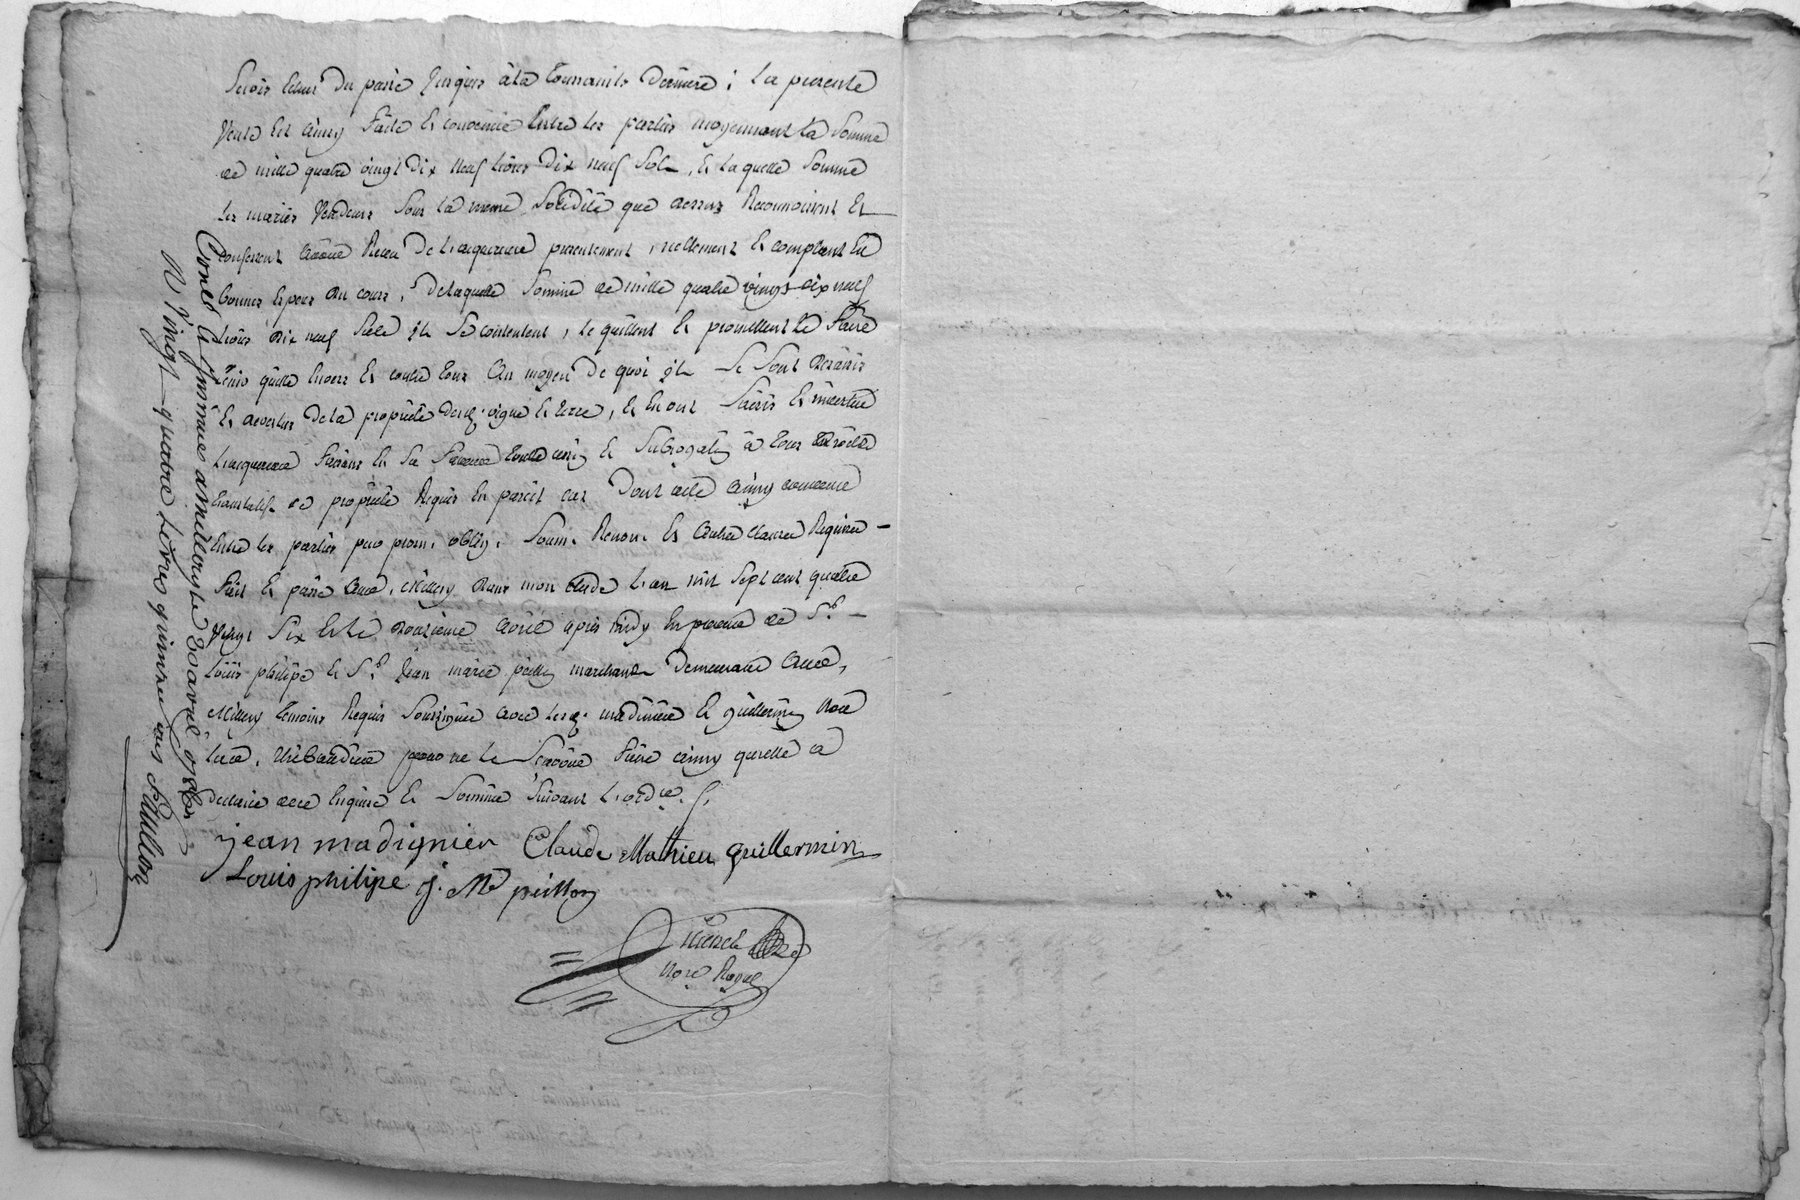 du passé jusques à la Toussaints derniere ; La presente
Vente est ainsy faite et convenüe Entre les parties moyennant la Somme
de mille quatre vingt dix neuf Livres dix neuf Sols, et la quelle Somme
les mariés Vendeurs sous la meme Solidité que dessus Reconnoissent et
Confessent avoir Receu de L'acquereur presentement, reellement et comptant En
bonnes Especes du cours, de laquelle Somme de mille quatre vingt dix neuf
Livres dix neuf Sols ils Se contentent, le quittent et promettent le faire
tenir quitte Envers et contre tous au moyen de quoi ils Se Sont
Et de la proprieté desd. vigne et terre, et En ont Saisis et investüe
L'acquereur En Sa faveur toute et à tous
translatif de proprieté Requis En pareil cas Dont acte ainsy convenüe
Entre les parties par prom. oblig. Soum. Renon. et autres clauses Requises
fait et passé aud. Millery dans mon Etude L'an mil Sept cent quatre
Vingt Six Et le avril après midy En presence de Sr.
Louis philipe et Sr. Jean marie marchands demeurants aud.
Millery temoins Requis Soussignés avec lesd. madiniér et guillermin non
lad. pour ne le Scavoir faire ainsy qu'elle a
declaré de ce Enquise et Sommée Suivant L'ord.e
jean madignier Claude Mathieu guillermin
Louis philipe J. Me peillon
Nore Royal
Controllé a millery le 20 avril 1786
R vingt quatre livres quinze sols peillon